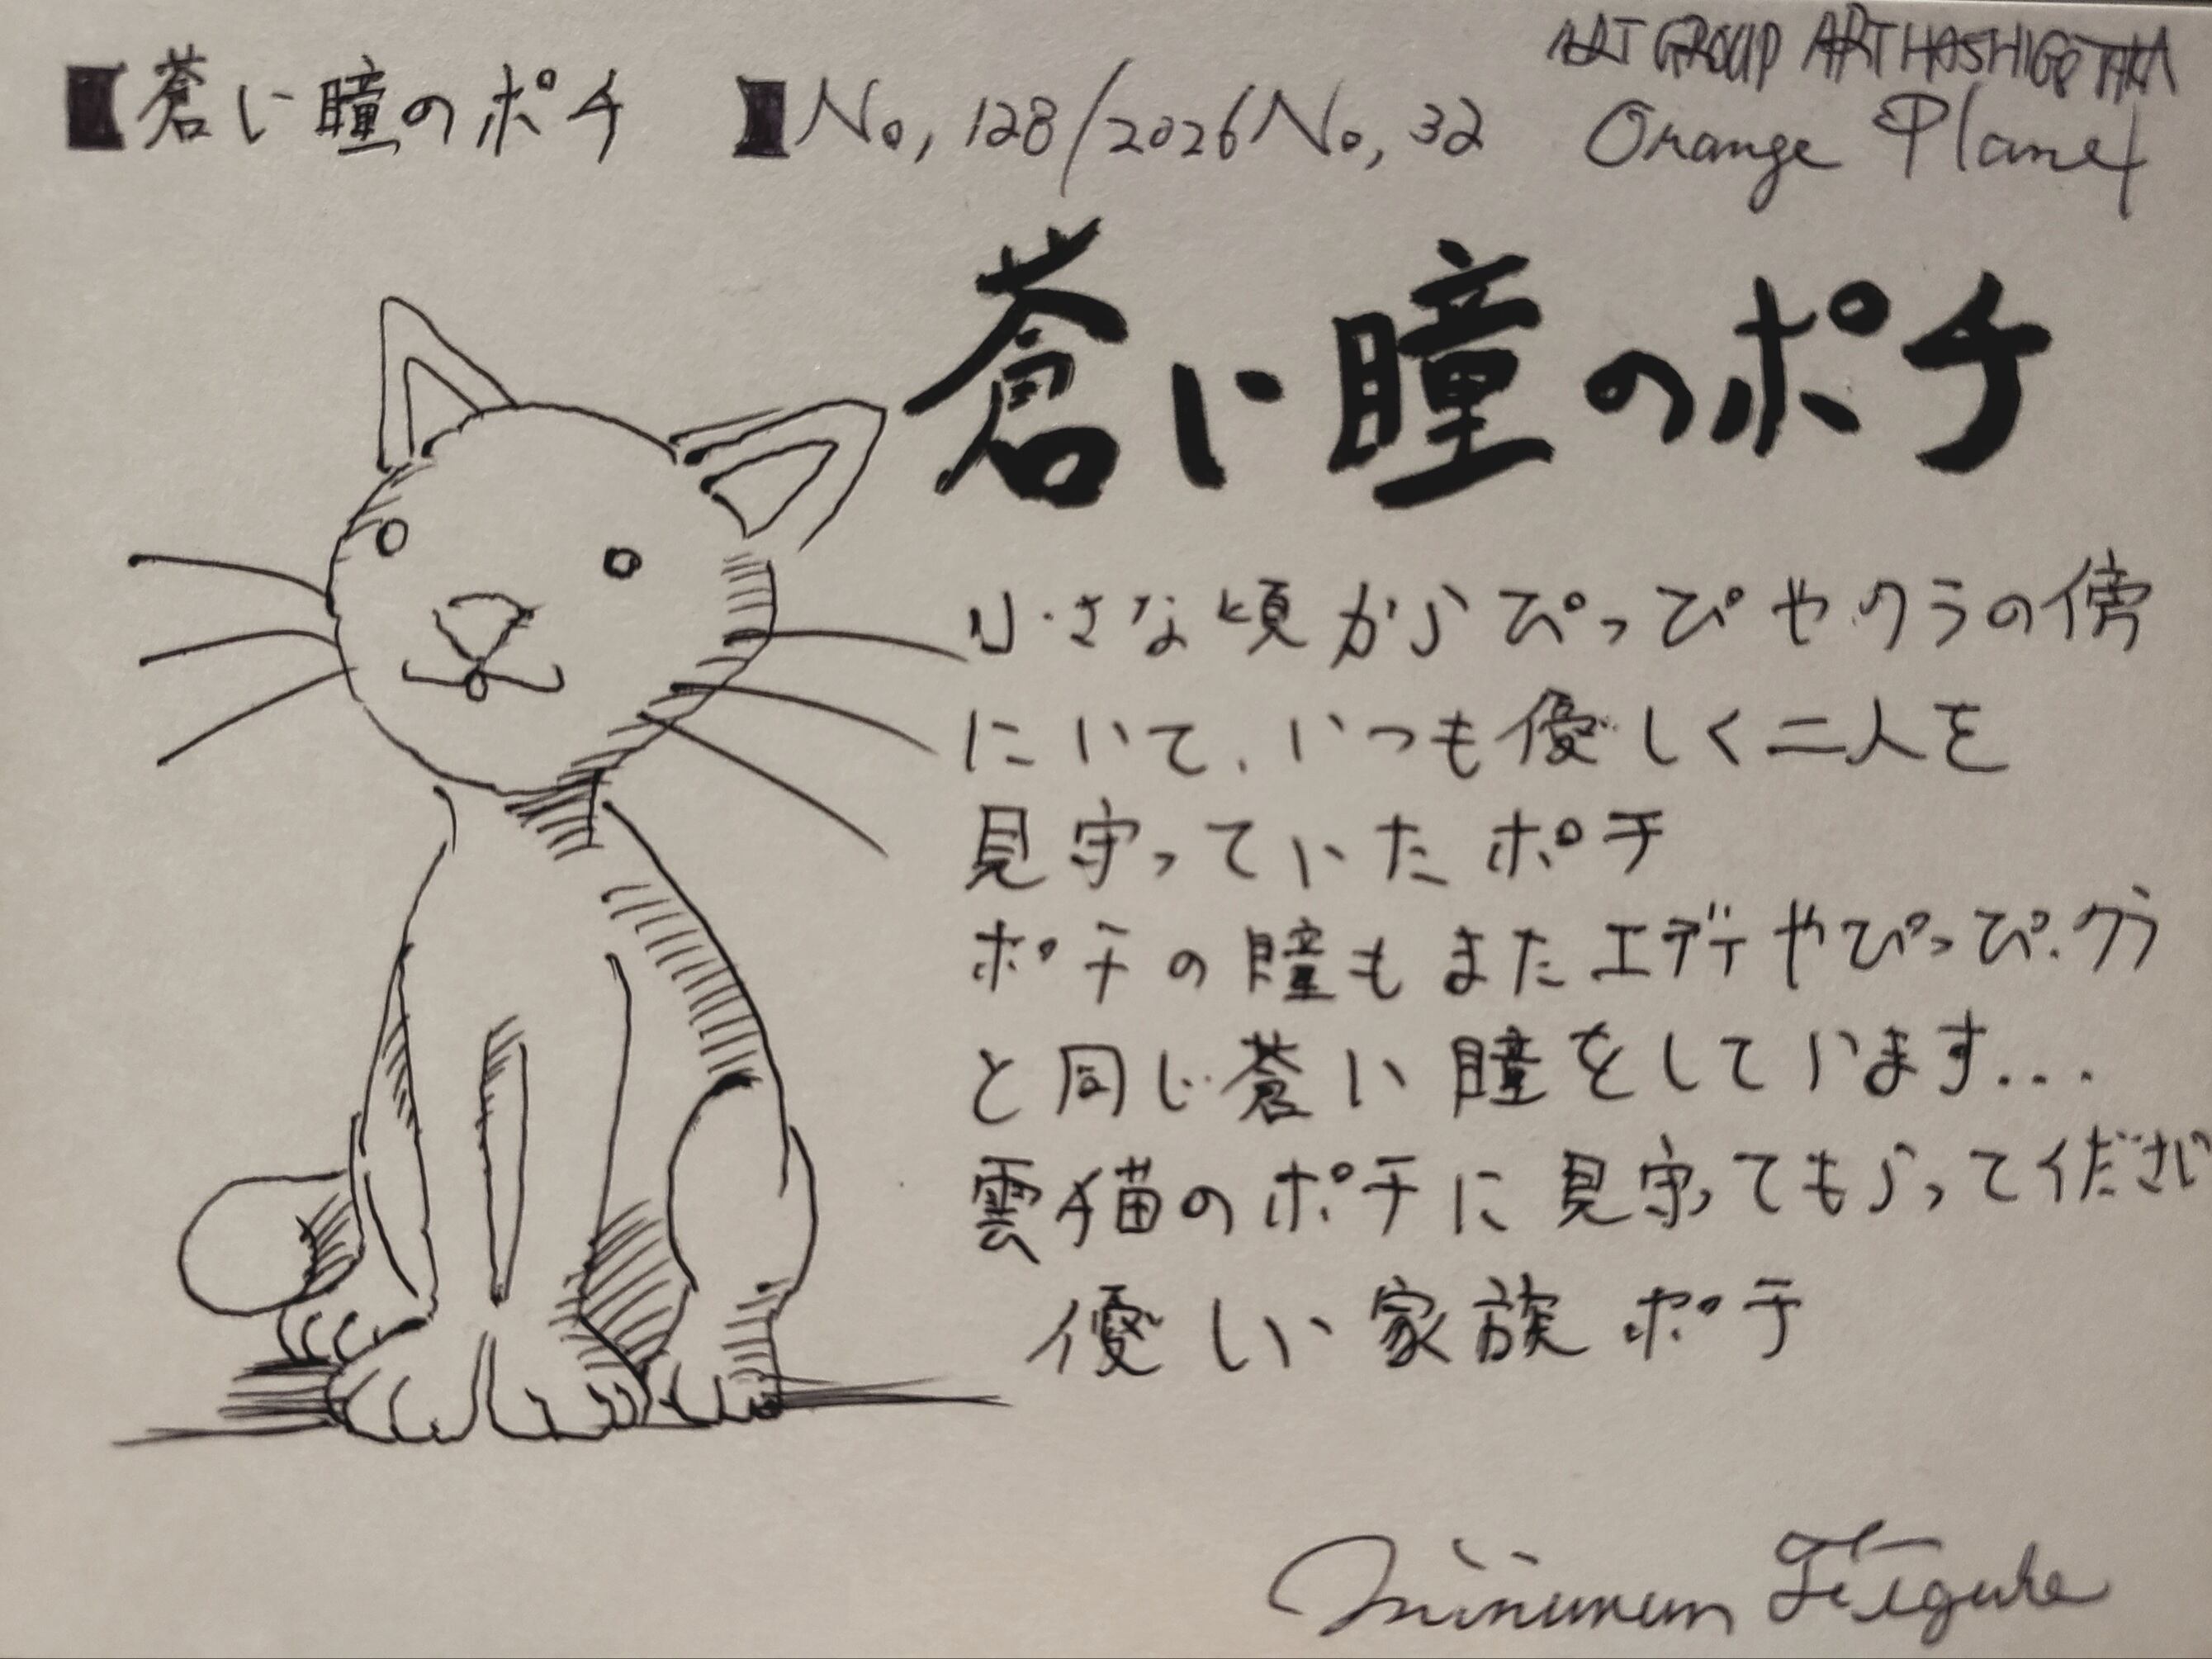 ART GROUP ART HASHIGOTAKA
【蒼い瞳のポチ 】No, 128/2026No, 32 Orange Planet
蒼い瞳のポチ
小さな頃からぴっぴやクラの傍
にいて、いつも優しく二人を
見守っていたポチ
ポチの瞳もまたエディやぴっぴ、クラ
と同じ蒼い瞳をしています...
雲猫のポチに見守ってもらってください
優しい家族ポチ
Minimum Figure